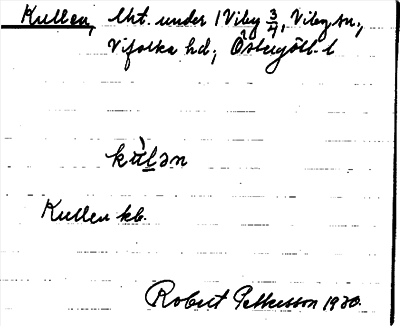 Kullen, lht. under 1 Viby 3/4, Viby sn.,
Vifolka hd., Östergötl. l
kùlən
Kullen kb.
Robert Pettersson 1930.